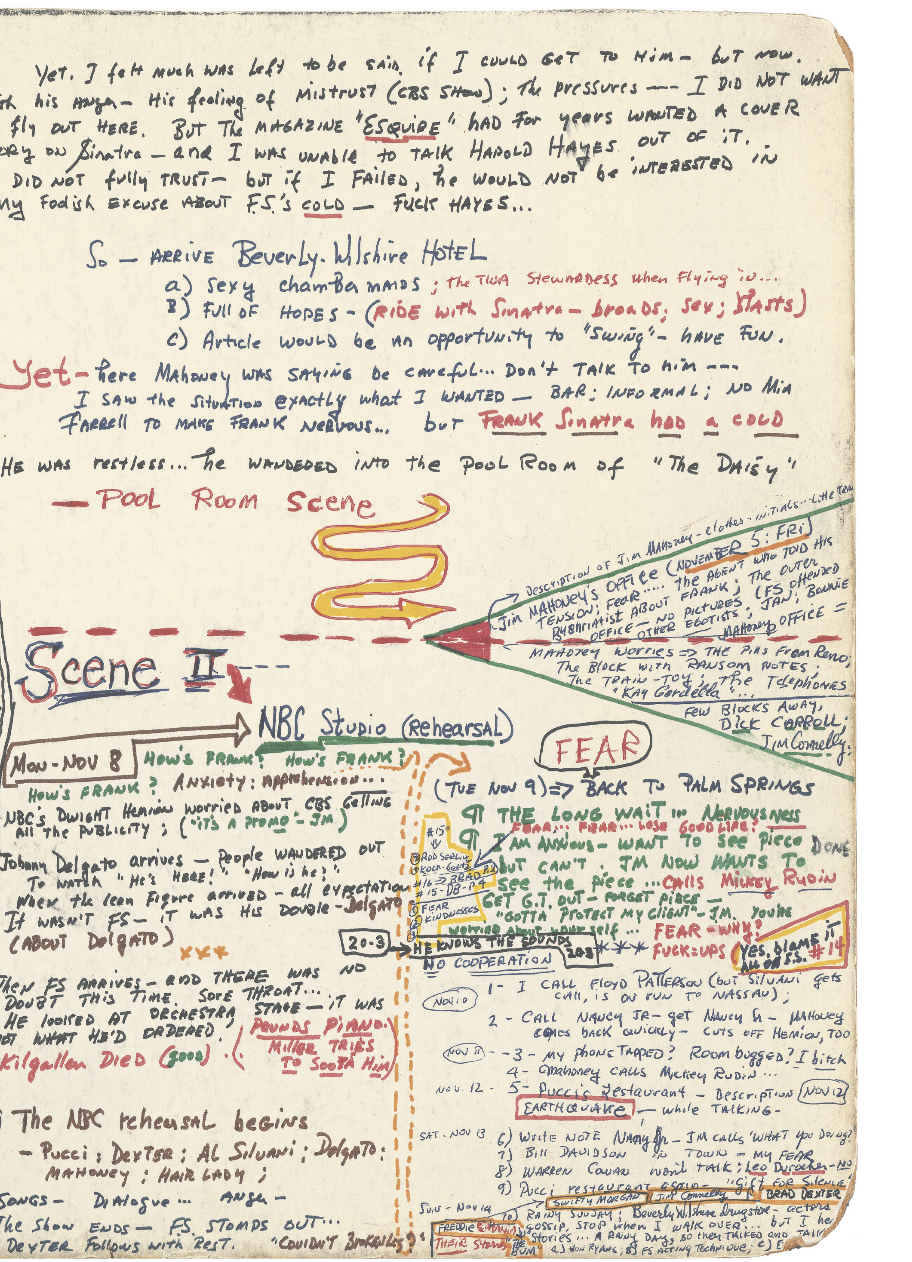 Yet. I felt much was left to be said. if I could get to Him — but now.
his anger — His feeling of Mistrust (CBS Show); the pressures --- I DID NOT WANT
fly out HERE. But The MAGAZINE "ESQUIRE" HAD for years WANTED A COVER
on Sinatra — and I was unable to talk Harold Hayes out of it.
DID NOT fully TRUST — but if I FAILED, he would not be interested in
my Foolish Excuse About F.S.'s COLD — FUCK HAYES...
So — ARRIVE Beverly-Wilshire HOTEL
a) Sexy chamber maids ; the TWA Stewardess when flying in...
B) Full of HOPES - (RIDE with Sinatra — broads; sex; Blasts)
c) Article would be an opportunity to "Swing" - HAVE FUN.
Yet - here Mahoney was saying be careful... Don't TALK TO him ---
I saw the situation exactly what I WANTED — BAR; INFORMAL; NO Mia
Farrell to make Frank nervous... but FRANK Sinatra had a COLD
HE was restless... he wandeded into the Pool Room of "The Daisy"
— POOL Room Scene
Description of Jim Mahoney - clothes - initials...
Jim Mahoney's office (November 5: Fri)
TENSION; Fear.... the AGENT who TOLD His
ABOUT FRANK; The outer
OFFICE — NO PICTURES (FS offended
OTHER EGOTISTS; JAN; BONNIE
Mahoney OFFICE =
Mahoney worries => THE PIX From Reno;
The Block with Ransom Notes;
The TRAIN-TOY; The Telephones
"Kay Gardella"...
Few Blocks Away,
Dick Carroll;
Jim Connelly.
Scene II
NBC Studio (rehearsal)
Mon - Nov 8
How's FRANK? How's FRANK?
How's FRANK? Anxiety; Apprehension...
NBC's Dwight Hemion worried about CBS getting
all the publicity; ("it's a promo" - JM)
Johnny Delgato arrives — People wandered out
To watch "He's Here!" "How is he?"
When the lean figure arrived — all expectation
It wasn't FS — it was His Double - Delgato
(ABOUT Delgato)
xxx
Then FS ARRIVES — AND THERE WAS NO
DOUBT THIS TIME. SORE THROAT...
HE looked at ORCHESTRA STAGE — it was
NOT WHAT HE'D ORDERED. (Pounds Piano.
Miller Tries
To Sooth Him)
Kilgallen Died (good).
The NBC rehearsal begins
— Pucci; Dexter; Al Silvani; Delgato;
Mahoney; Hair Lady;
Songs — Dialogue... Anger —
The Show ENDS — F.S. STOMPS OUT...
Dexter Follows with Rest.
FEAR
(Tue Nov 9) => BACK TO PALM SPRINGS
¶ THE LONG WAIT... Nervousness
FEAR... FEAR... LOSE GOOD LIFE?
¶ I AM ANXIOUS — WANT TO See PIECE DONE
BUT CAN'T. JM NOW WANTS TO
See the piece... CALLS Mickey Rudin
GET G.T. out — FORGET PIECE —
"GOTTA PROTECT MY CLIENT" - JM. You're
worried about yourself... FEAR — WHY?
#15
FEAR
KINDNESSES
FUCK=UPS
Yes, blame it
all on F.S. #14
20-3
HE KNOWS THE SOUNDS
20-3
***
NO COOPERATION
Nov 10
1 - I CALL FLOYD PATTERSON (but Silvani gets
CALL, is on run to NASSAU);
2 - CALL NANCY JR - get NANCY Sr — Mahoney
comes back quickly — cuts off Hemion, too
Nov 11
3 - my phone TAPPED? Room bugged? I bitch
4 - Mahoney CALLS Mickey Rudin...
Nov. 12 - 5 - Pucci's Restaurant — Description (Nov 12)
EARTHQUAKE — while TALKING -
SAT - Nov 13
6) Write NOTE Nancy Jr - JM calls 'What you doing?'
7) Bill Davidson in town — my FEAR
8) Warren Cowan won't talk; Leo Durocher - NO
9) Pucci restaurant again — "Gift for Silence
SWIFTY MORGAN
Jim Connelly
BRAD DEXTER
Sun - Nov 14
10) Rainy Sunday; Beverly Wilshire Drugstore - actors
gossip, stop when I walk over... but I he
Stories... A Rainy Day, so they talked and
THEIR Story
B) FS Acting Technique;